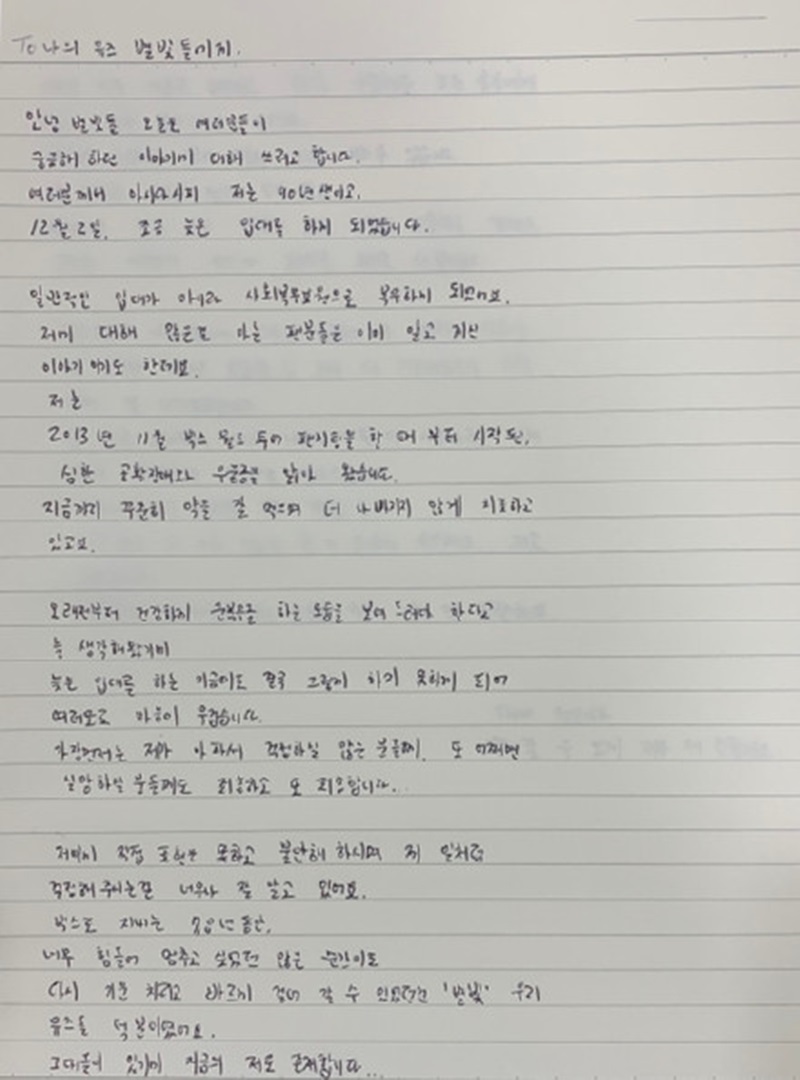 To 나의 유즈 별빛들에게.
안녕 별빛들 오늘은 여러분들이
궁금해 하던 이야기에 대해 쓰려고 합니다.
여러분께서 아시다시피 저는 90년생이고,
12월 2일, 조금 늦은 입대를 하게 되었습니다.
일반적인 입대가 아니라 사회복무요원으로 복무하게 되었어요.
저에 대해 많은걸 아는 팬분들은 이미 알고 계신
이야기 이기도 한데요.
저는
2013년 11월 빅스 월드 투어 판타지를 할 때 부터 시작된,
심한 공황장애와 우울증을 앓아 왔습니다.
지금까지 꾸준히 약을 잘 먹으며 더 나빠지지 않게 치료하고
있고요.
오래전부터 건강하게 군복무를 하는 모습을 보여 드려야 한다고
늘 생각해왔지만
늦은 입대를 하는 지금에도 결국 그렇게 하기 못하게 되어
여러모로 마음이 무겁습니다.
가장먼저는 제가 아파서 걱정하실 많은 분들께, 또 어쩌면
실망하실 분들께도 죄송하고 또 죄송합니다..
저에게 직접 표현은 못하고 불안해 하시며 제 일처럼
걱정해 주시는걸 너무나 잘 알고 있어요.
빅스로 지내는 동안,
너무 힘들어 멈추고 싶었던 많은 순간에도
다시 기운 차리고 바르게 걸어 갈 수 있었던건 '별빛' 우리
유즈들 덕분이었어요.
그대들이 있기에 지금의 저도 존재합니다...